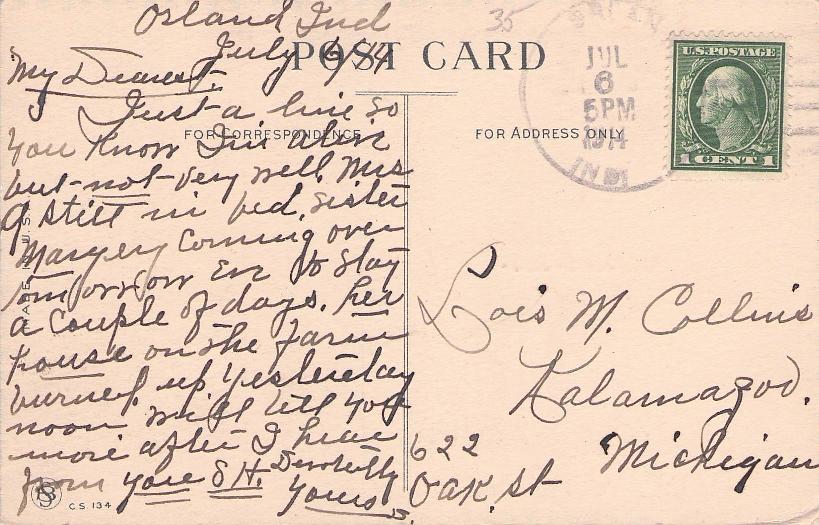 Orland Ind
July 6/14
POST CARD
My Dearest,
Just a line so
FOR CORRESPONDENCE
you know I'm alive
but not very well, Mrs
G still in bed, sister
Margery Coming over
tomorrow Eve to stay
a couple of days. her
house on the farm
burned up yesterday
noon will tell you
more after I hear
from you S.H. Devotedly
Yours
CS 134
35
JUL
6
5PM
1914
IND
U.S. POSTAGE
1 CENT 1
FOR ADDRESS ONLY
Lois M. Collins
Kalamazoo.
622
Michigan
Oak, st